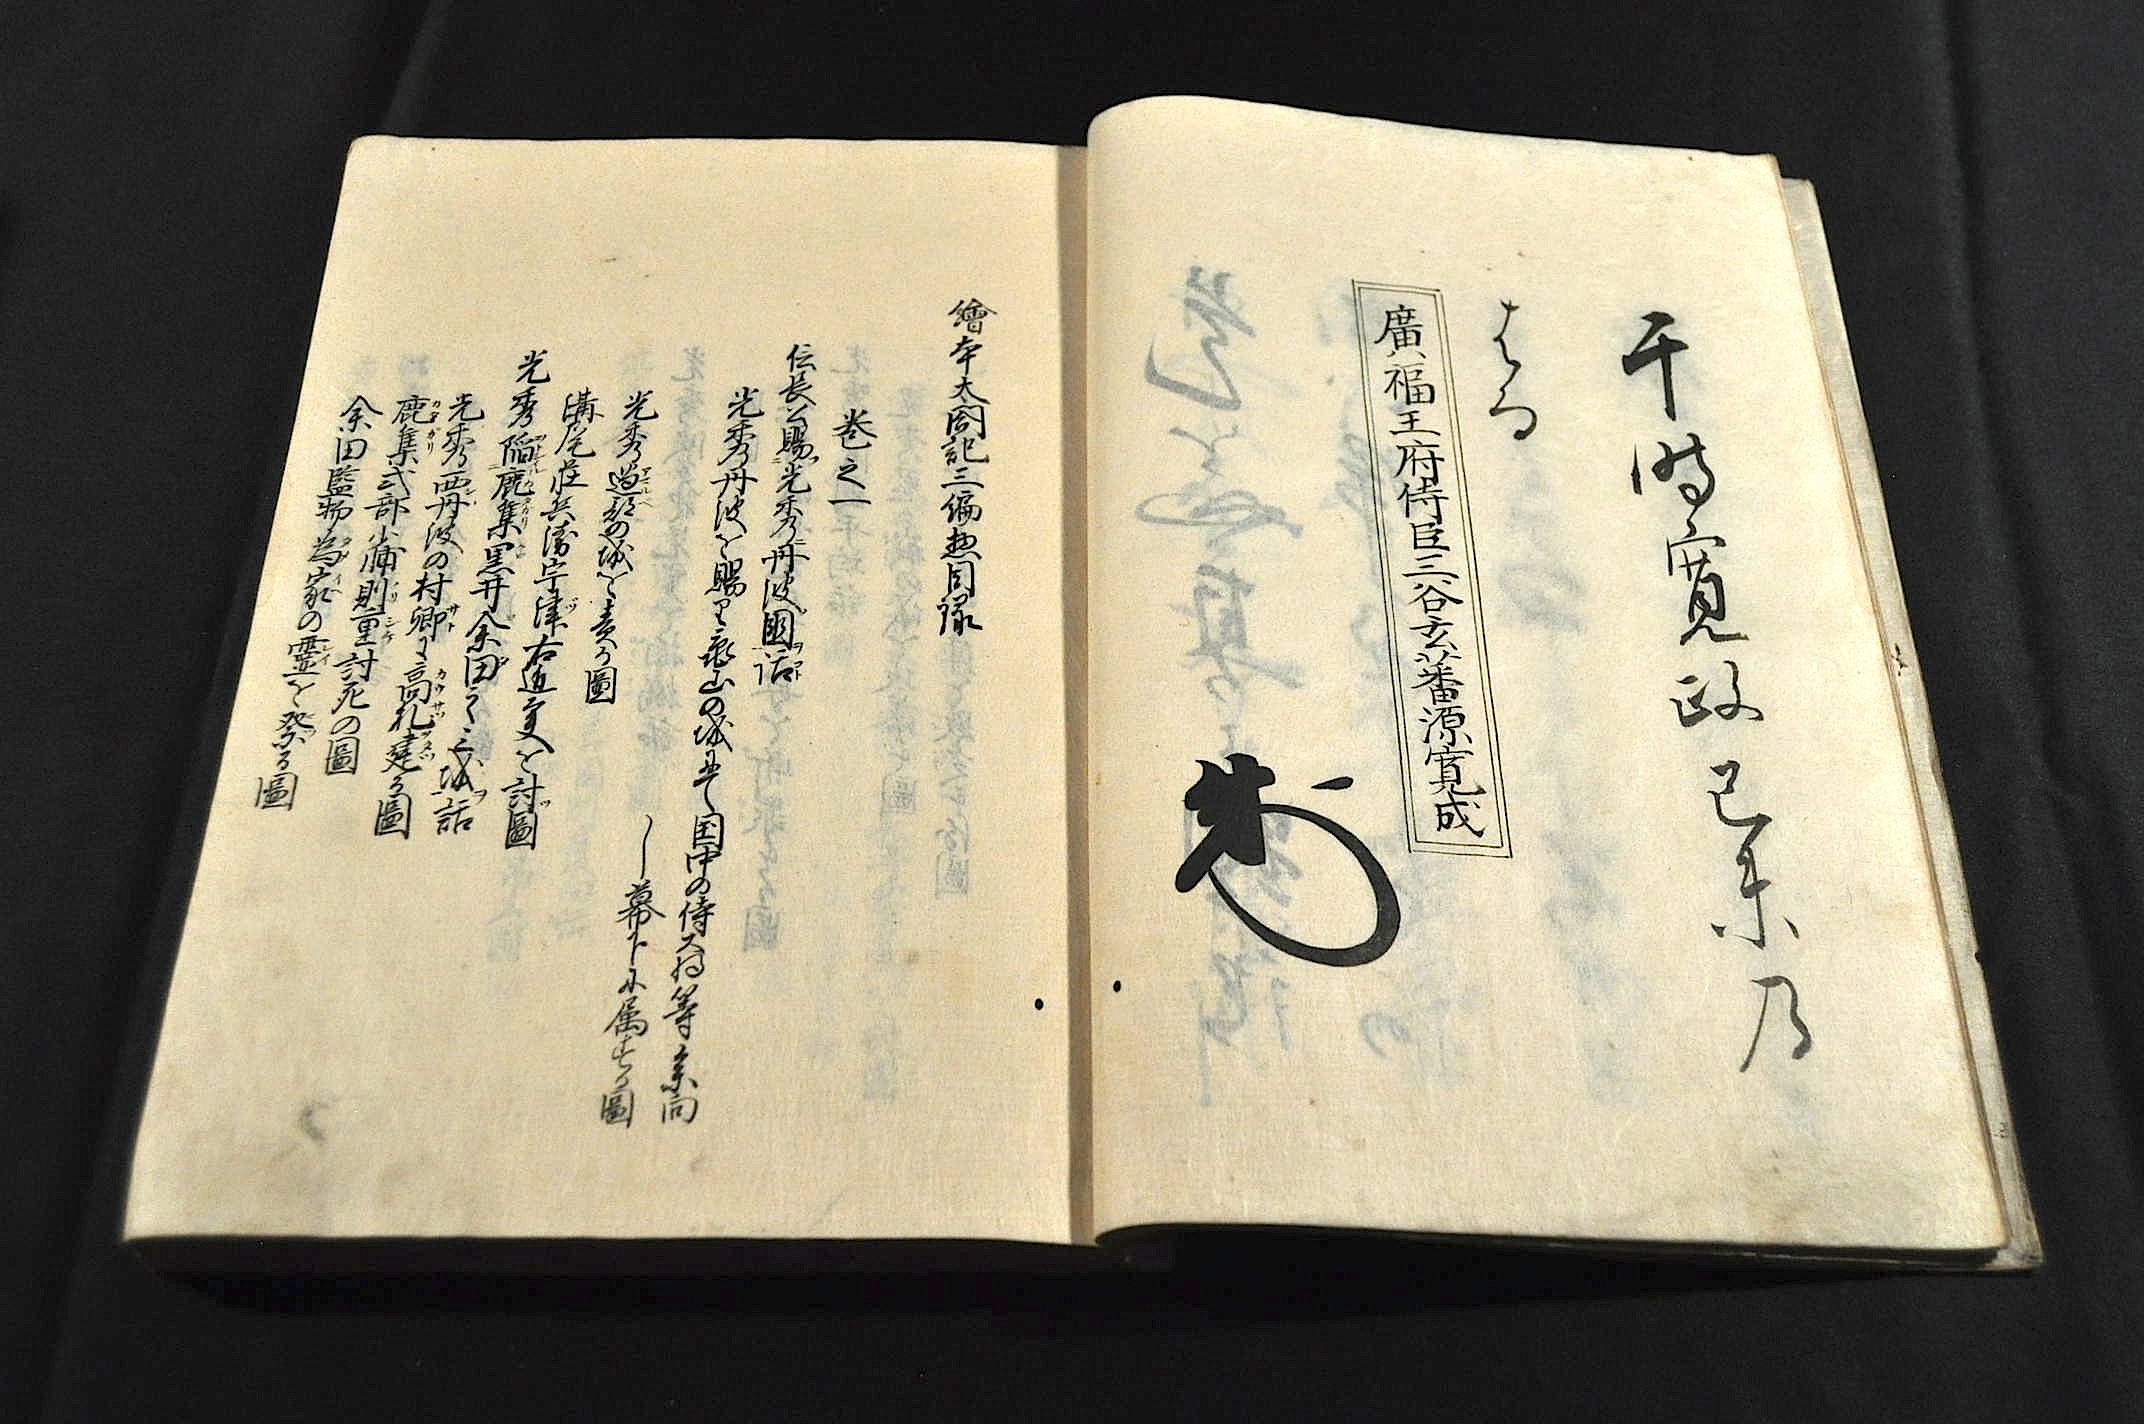 干時寛政己未乃
はる
廣福王府侍臣三谷玄蕃源寛成
繪本太閤記三編惣目録
巻之一
伝長公賜光秀丹波國話
光秀丹波を賜り亀山の城にて国中の侍大将等参向
し幕下に属する圖
光秀過部の城を責る圖
溝尾荘兵衛宇津右近亮を討圖
光秀陥鹿集黒井余田之三城話
光秀西丹波の村郷に高札建る圖
鹿集式部少輔則重討死の圖
余田監物為家の霊を祭る圖